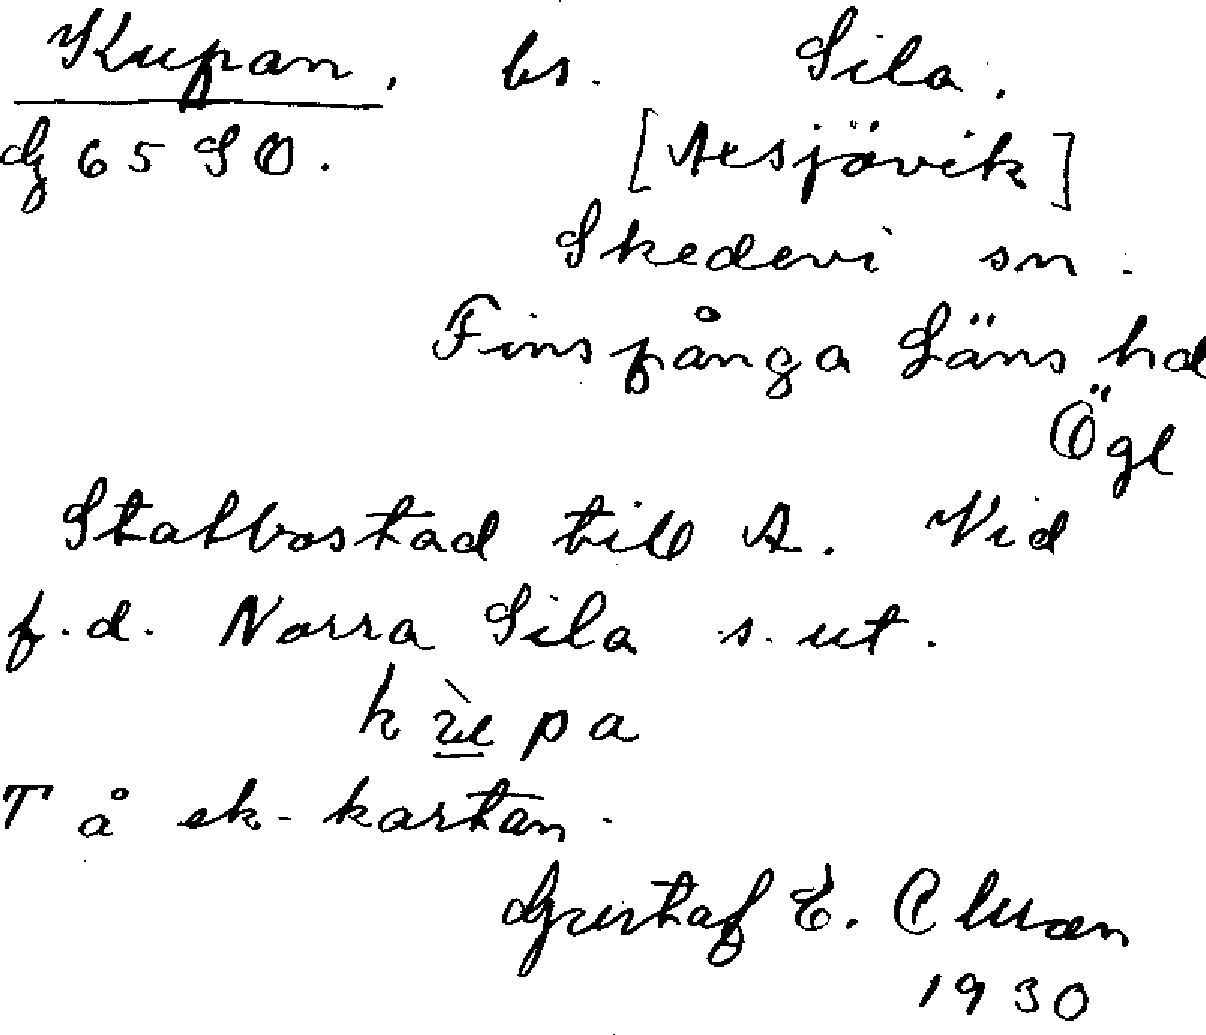 Kupan. bs. Sila.
G 65 SO. [Axsjövik]
Skedevi sn.
Finspånga Läns hd
Ögl
Statbostad till A. Vid
f.d. Norra Sila s. ut.
T å ek-kartan.
Gustaf E.
1930